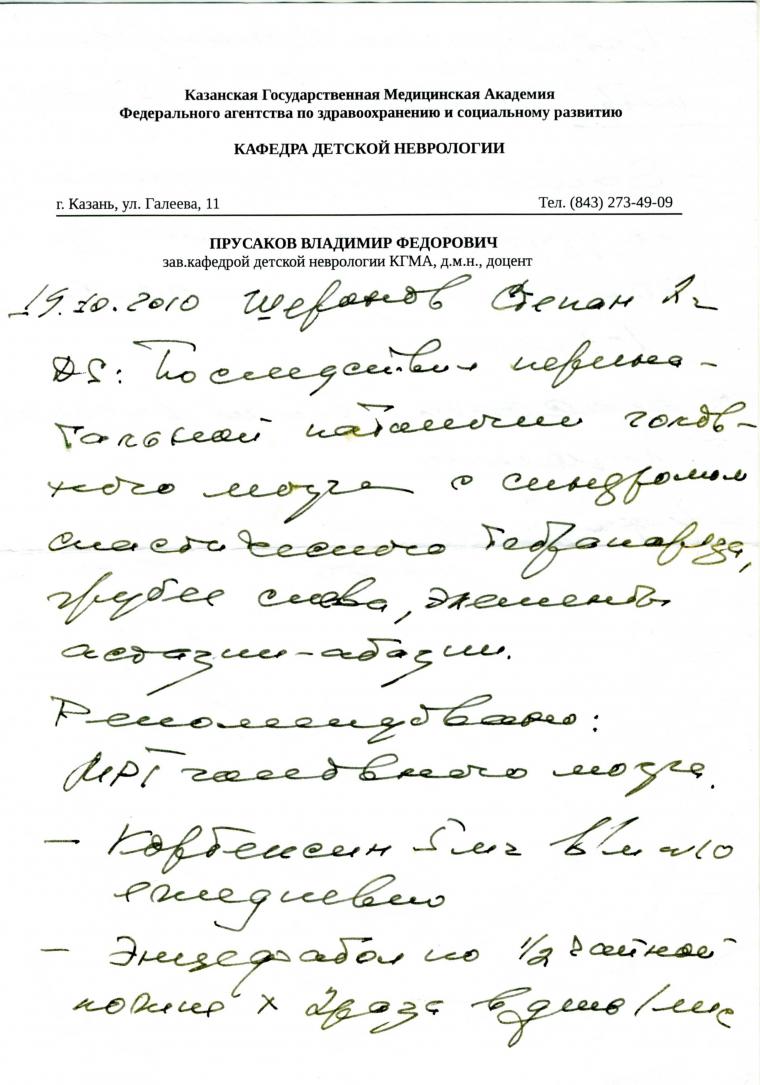 Казанская Государственная Медицинская Академия
Федерального агентства по здравоохранению и социальному развитию
КАФЕДРА ДЕТСКОЙ НЕВРОЛОГИИ
г. Казань, ул. Галеева, 11 Тел. (843) 273-49-09
ПРУСАКОВ ВЛАДИМИР ФЕДОРОВИЧ
зав.кафедрой детской неврологии КГМА, д.м.н., доцент
19.10.2010 Степан 2 г
DS: Последствия перина-
тальной патологии голов-
ного мозга с синдромом
спастического тетрапареза,
грубее слева, элементы
астазии-абазии.
Рекомендовано:
МРТ головного мозга.
— Кортексин 5 мг в/м №10
ежедневно
— Энцефабол по 1/2 чайной
ложки x 2 раза в день 1 мес